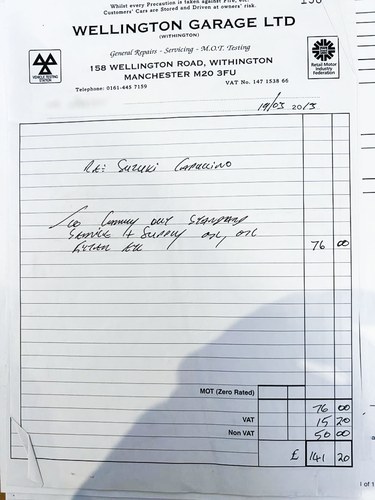 Whilst every Precaution is taken against Fire, etc.
Customers' Cars are Stored and Driven at owners' risk.
WELLINGTON GARAGE LTD
(WITHINGTON)
General Repairs - Servicing - M.O.T. Testing
158 WELLINGTON ROAD, WITHINGTON
MANCHESTER M20 3FU
VEHICLE TESTING
STATION
Retail Motor
Industry
Federation
Telephone: 0161-445 7159
VAT No. 147 1538 66
19/03 2013
RE: SUZUKI CAPUCINO
TO CARRY OUT STANDARD
SERVICE + SUPPLY OIL, OIL
FILTER ETC 76 00
MOT (Zero Rated)
76 00
VAT 15 20
Non VAT 50 00
£ 141 20
of 1